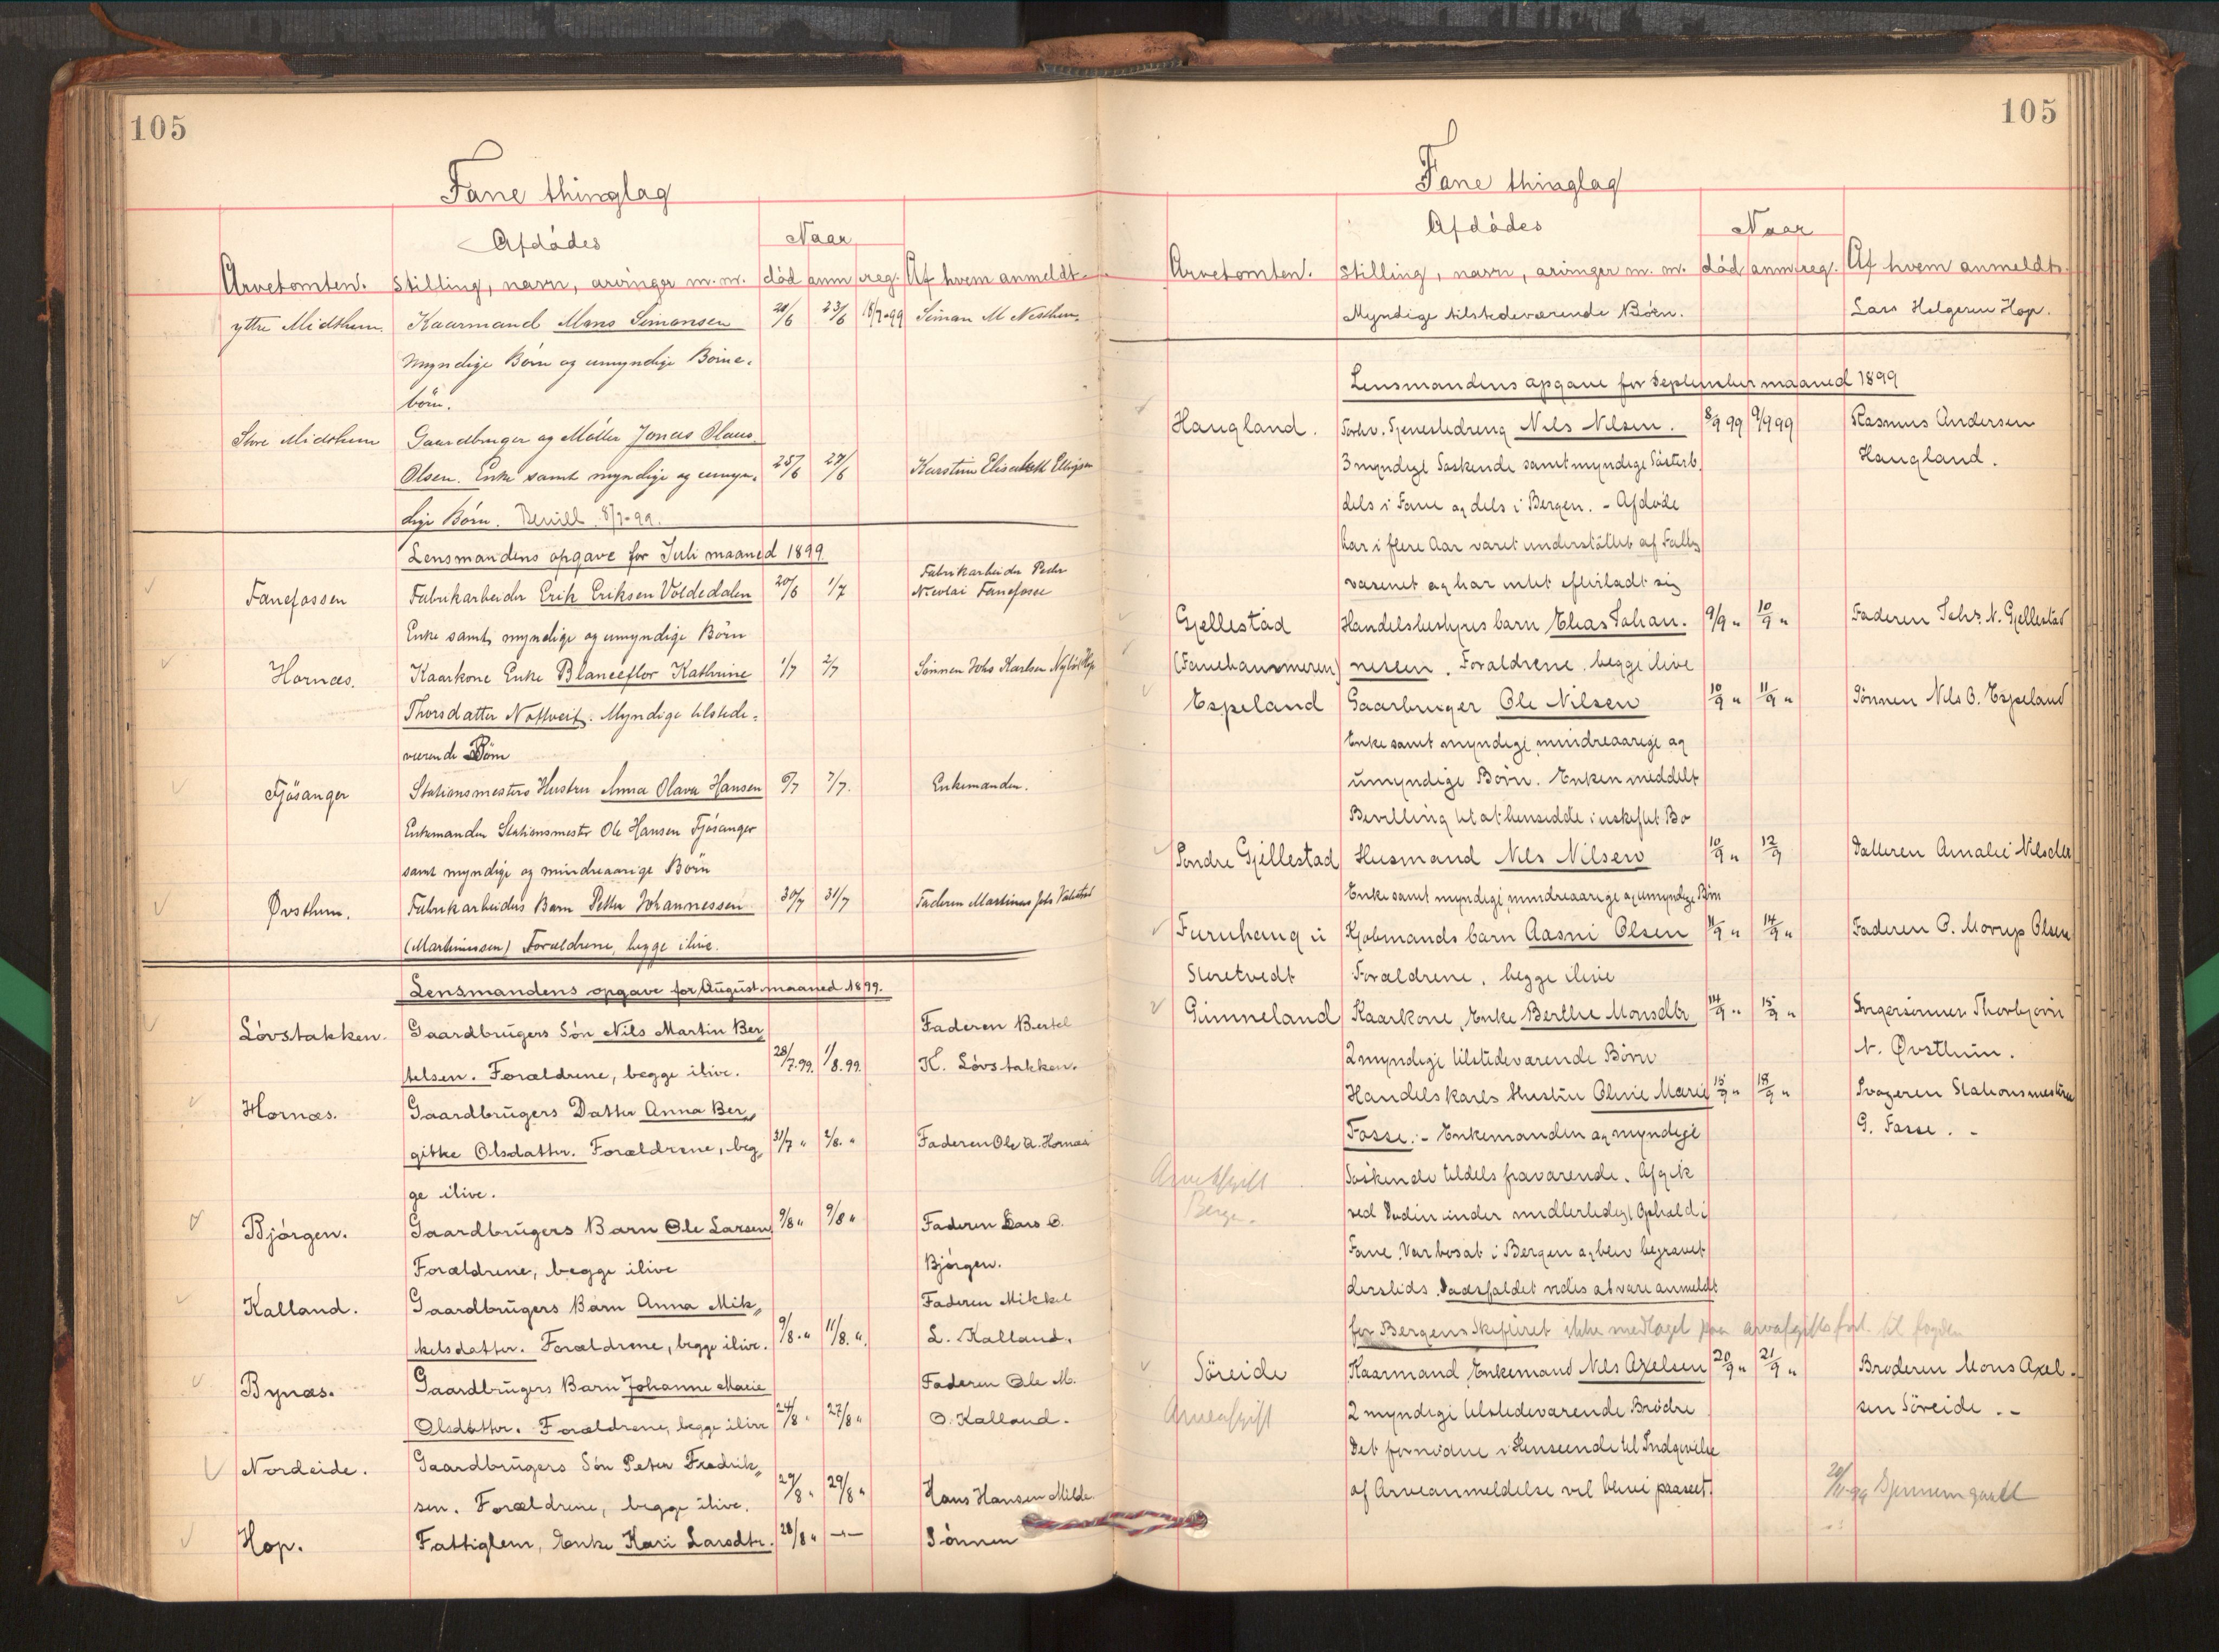 105
Fane thinglag
Afdødes
Naar
Arvetomten. stilling, navn, arvinger m. m. død anm reg. Af hvem anmeldt.
yttre Midthun. Kaarmand Mons Simonsen 20/6 23/6 8/7-99 Siman M Nesthun.
Myndige Børn og umyndige Børne-
börn.
Store Midthun Gaardbruger og Møller Jonas Olaus
Olsen. Enke samt myndige og umyn- 25/6 27/6 Karstine Elisabeth Ellingsen
dige Børn. Bevill. 8/7-99.
Lensmandens opgave for Juli maaned 1899.
Fabrikarbeider Peder
Fanefossen Fabrikarbeider Erik Eriksen Voldedalen 20/6 1/7 Nicolai Fanefosse
Enke samt myndige og umyndige Börn
Hornæs. Kaarkone Enke Blanceflor Kathrine 1/7 2/7 Sønnen Johs Karlsen Hop
Thorsdatter Nattveit. Myndige tilstede-
værende Børn
Fjøsanger Stationsmesters Hustru Anna Olava Hansen 6/7 7/7. Enkemanden.
Enkemanden Stationsmestr Ole Hansen Fjøsanger
samt myndige og mindreaarige Börn
Øvsthun. Fabrikarbeiders Barn Petter Johannessen 30/7 31/7 Faderen Martinus Johs
(Martinussen) Forældrene, begge ilive.
Lensmandens opgave for August maaned 1899.
Løvstakken. Gaardbrugers Søn Nils Martin Ber- Faderen Bertel
telsen. Forældrene, begge ilive. 28/7.99. 1/8.99. K. Løvstakken.
Hornæs. Gaardbrugers Datter Anna Ber„
gitke Olsdatter. Forældrene, beg„ 31/7 „ 2/8. „ Faderen Ole A. Hornæs
ge ilive.
Bjørgen. Gaardbrugers Barn Ole Larsen 9/8 „ 9/8 „ Faderen Lars O.
Forældrene, begge ilive Bjørgen.
Kalland. Gaardbrugers Barn Anna Mik„ Faderen Mikkel
kelsdatter. Forældrene, begge ilive. 9/8. „ 11/8. „ L. Kalland.
Bynæs. Gaardbrugers Barn Johanne Marie Faderen Ole M.
Olsdatter. Forældrene, begge ilive 24/8 „ 27/8 „ O. Kalland.
Nordeide. Gaardbrugers Søn Peter Fredrik„
sen. Forældrene, begge ilive. 29/8 „ 29/8 „ Hans Hansen Milde.
Hop. Fattiglem, Enke Kari Larsdtr. 28/8 „ —„— Sønnen
105
Fane thinglag
Afdødes
Naar
Arvetomten. stilling, navn, arvinger m. m. død anm. reg. Af hvem anmeldt.
Myndige tilstedeværende Børn. Lars Helgesen Hop.
Lensmandens opgave for September maaned 1899
Haugland. Forhv. Tjenestedreng Nils Nilsen. 8/9 99 9/9 99 Rasmus Andersen
3 myndige Søskende samt myndige Søsterb. Haugland.
dels i Fane og dels i Bergen. - Afdøde
har i flere Aar været understøttet af Fattig
væsenet og har intet efterladt sig
Gjellestad Handelsbestyrers barn Elias Johan. 9/9 „ 10/9 „ Faderen Johs. N. Gjellestad
(Fanehammeren) nesen. Forældrene, begge ilive
Espeland Gaarbruger Ole Nilsen 10/9 „ 11/9 „ Sønnen Nils O. Espeland
Enke samt myndige, mindreaarige og
umyndige Børn. Enken meddelt
Bevilling til at hensidde i uskiftet Bo
Søndre Gjellestad Husmand Nils Nilsen 10/9 „ 12/9 Datteren Amalie Nilsdtr
Enke samt myndige, mindreaarige og umyndige Børn
Furuhaug i Kjøbmands barn Aasni Olsen 11/9 „ 14/9 „ Faderen O. Morup Olsen
Storetvedt Forældrene, begge ilive
Gimmeland Kaarkone, Enke Berthe Monsdtr 14/9 „ 15/9 „ Svigersønnen Thorbjørn
2 myndige tilstedeværende Børn N. Øvsthun.
Handelskarls Hustru Oline Marie 15/9 „ 18/9 „ Svogeren Stationsmester
Fosse. - Enkemanden og myndige G. Fosse. -
Arveafgift Søskende tildels fraværende. Afgik
Bergen. ved Døden under midlertidigt Ophold i
Fane. Var bosat i Bergen og blev begravet
dersteds. Dødsfaldet vides at være anmeldt
for Bergens Skifteret ikke medtaget paa arveafgiftsfort. til fogden
Søreide Kaarmand, Enkemand Nils Axelsen 20/9 „ 21/9 „ Broderen Mons Axel-
Arveafgift 2 myndige tilstedeværende Brødre sen Søreide. -
Det fornødne i Henseende til Indgivelse
af Arveanmeldelse vil blive paaseet. 20/11-99 Gjennemgaaet